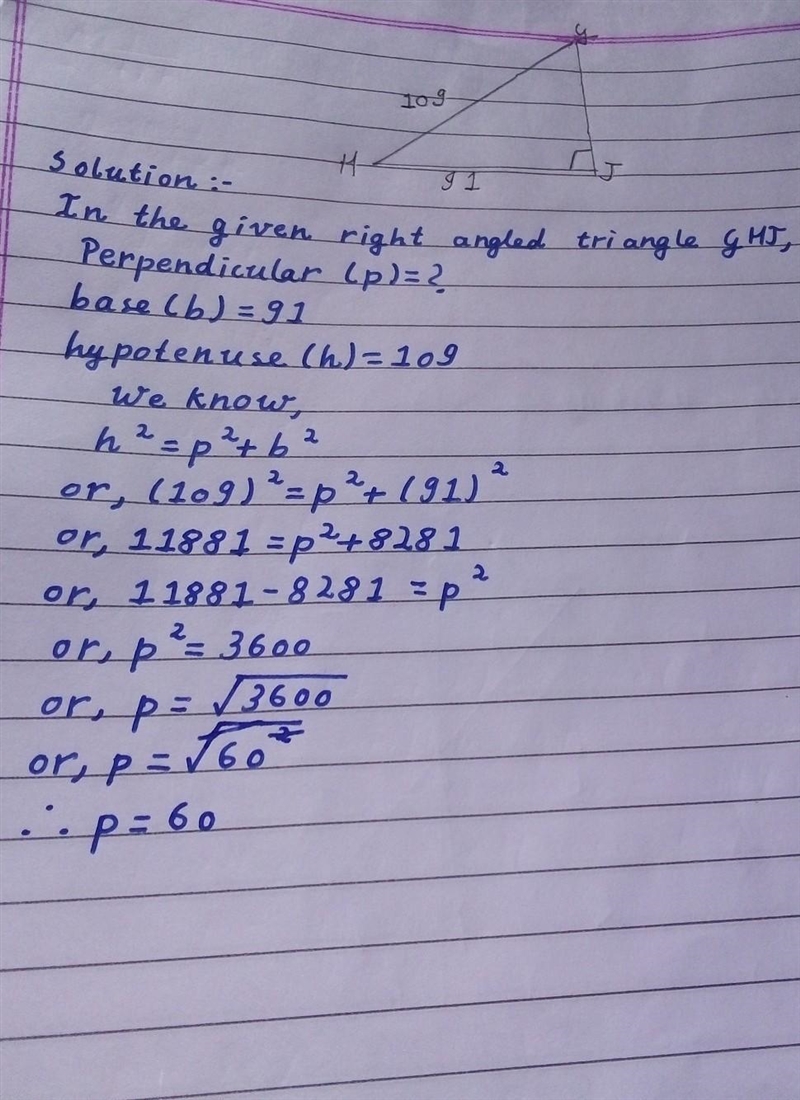 G
109
H
91
J
Solution :-
In the given right angled triangle GHJ,
Perpendicular (p)=?
base (b) = 91
hypotenuse (h) = 109
We know,
h² = p² + b²
or, (109)² = p² + (91)²
or, 11881 = p² + 8281
or, 11881 - 8281 = p²
or, p² = 3600
or, p = √3600
or, p = √60²
∴ p = 60